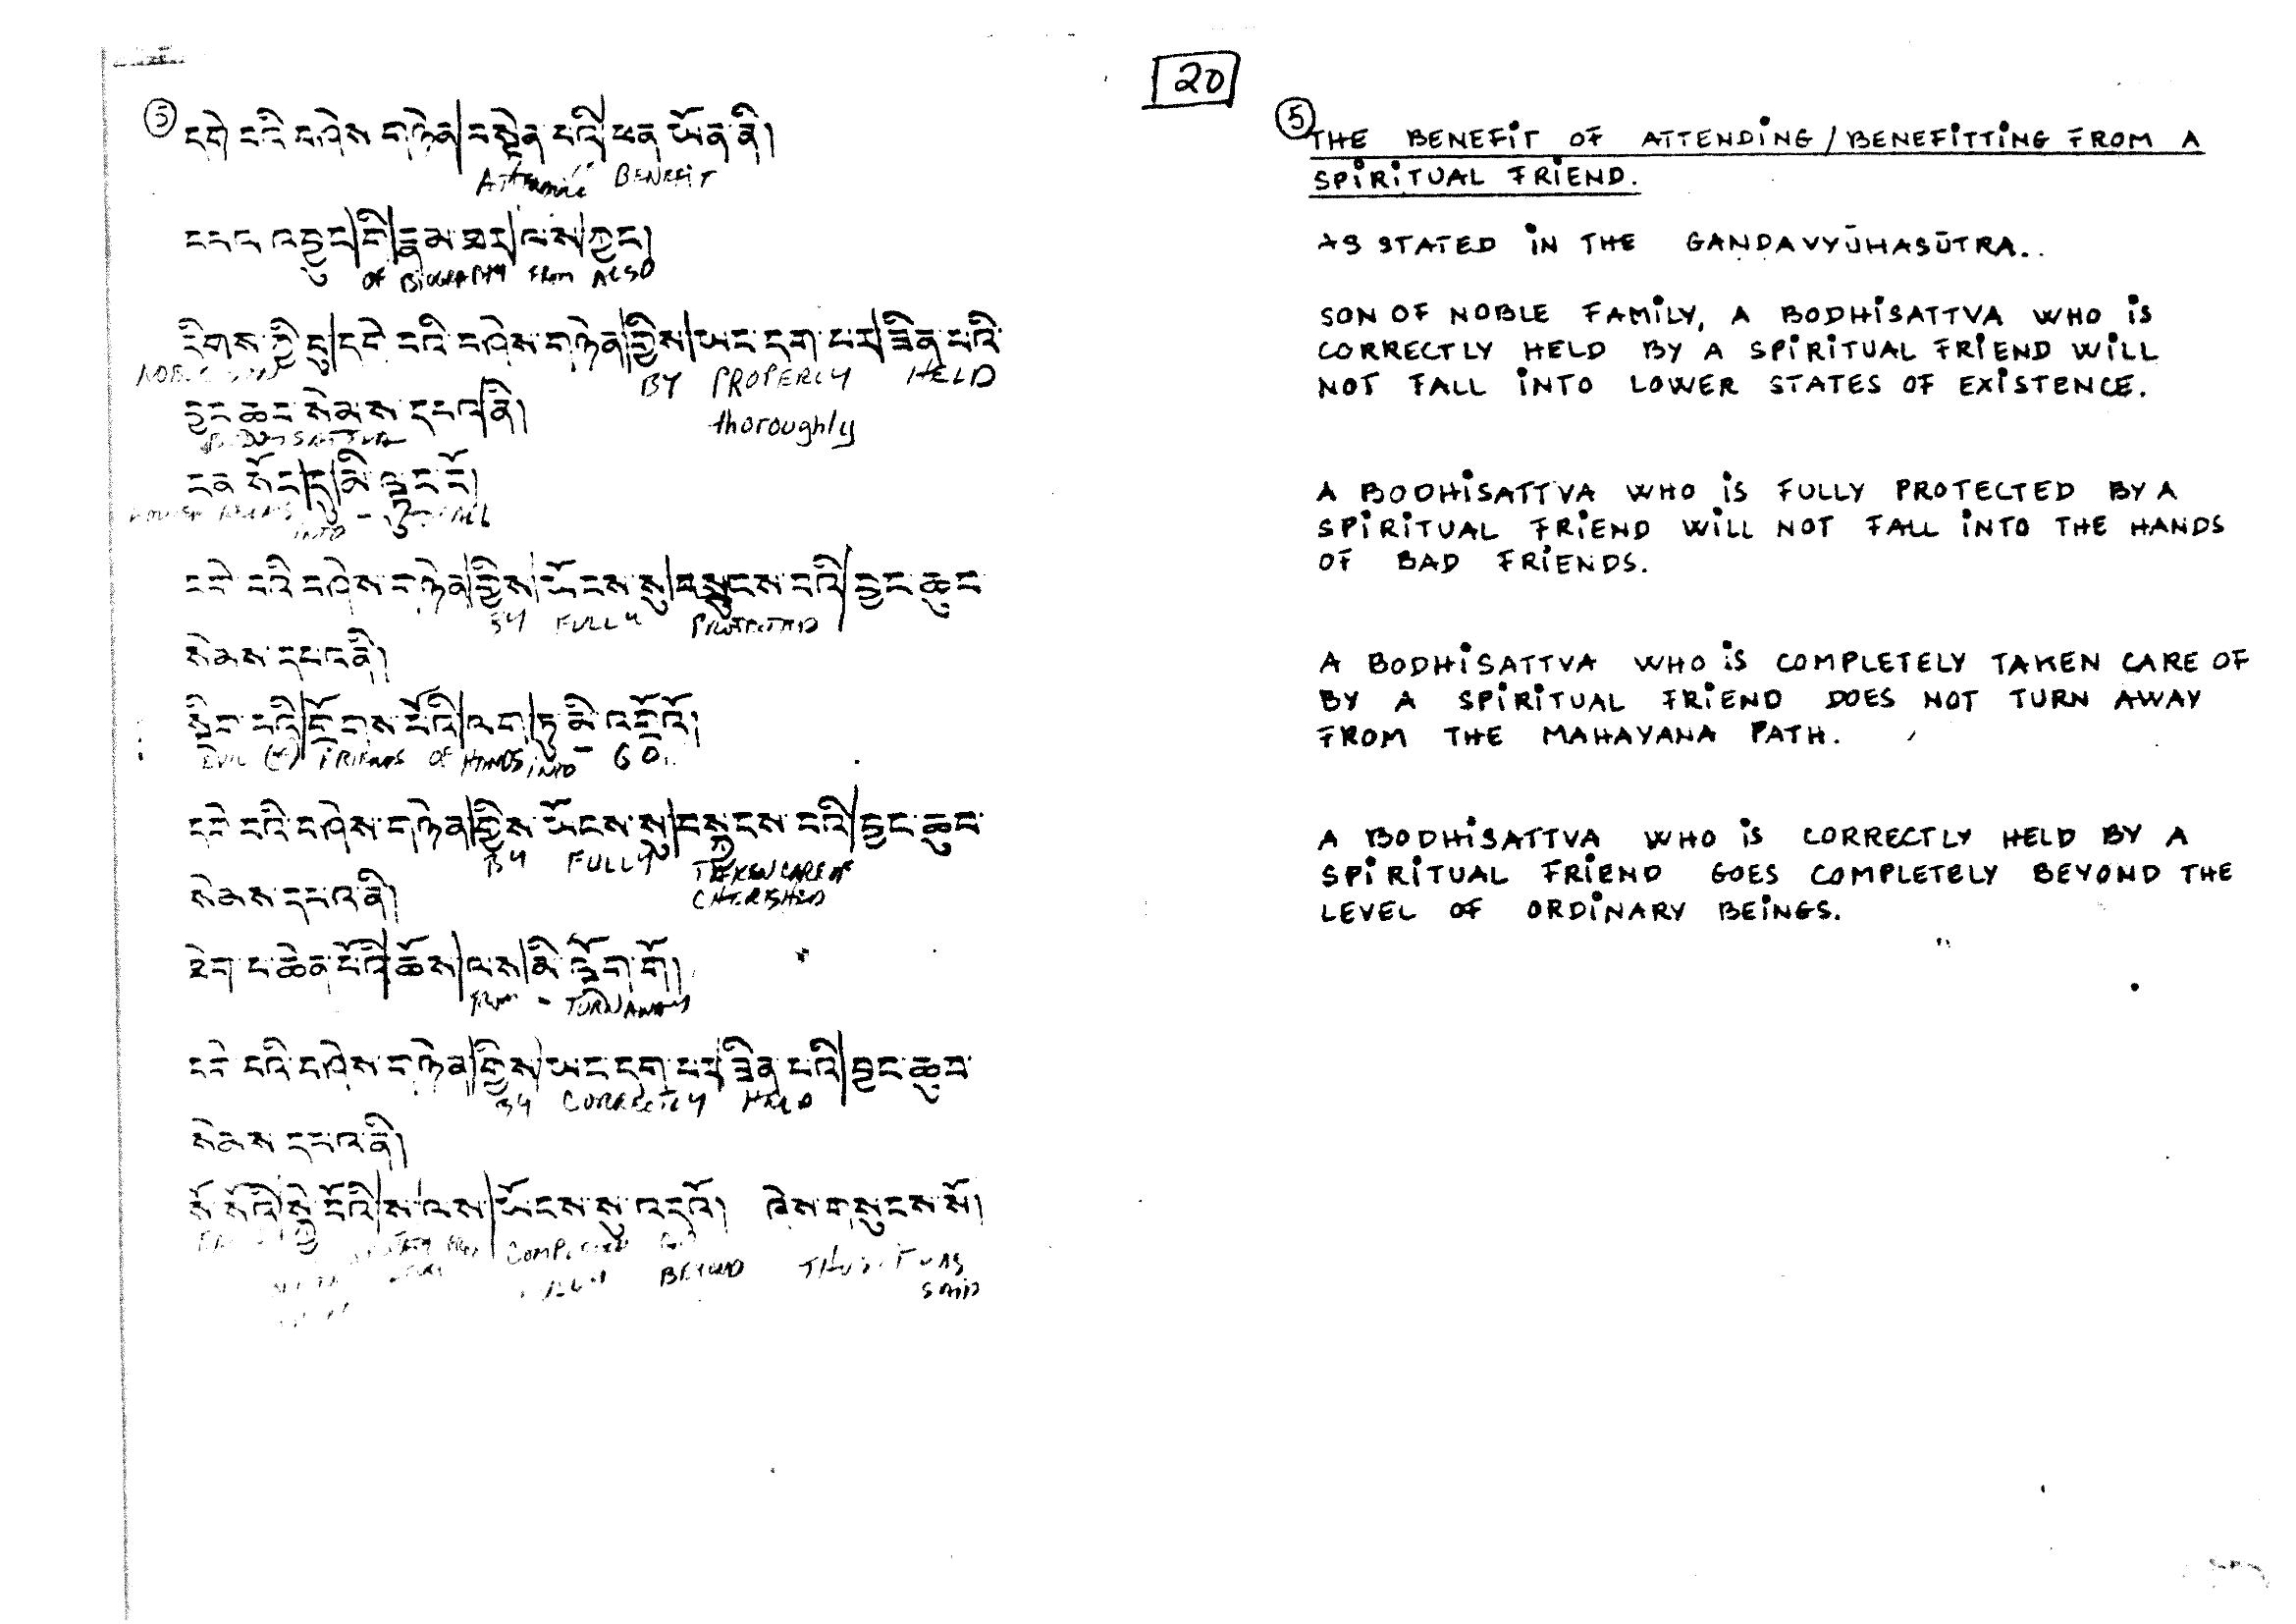 20
⑤ དགེ བའི བཤེས གཉེན|བསྟེན པའི|ཕན ཡོན ནི།
BENEFIT
|གི|རྣམ ཐར|ལས|ཀྱང|
OF BIOGRAPHY FROM ALSO
རིགས ཀྱི བུ|དགེ བའི བཤེས གཉེན|གྱིས|ཡང དག པར|ཟིན པའི
BY PROPERLY HELD
བྱང ཆུབ སེམས དཔའ|ནི།
thoroughly
BODHISATTVA
ངན སོང|དུ|མི ལྟུང ངོ།
INTO - FALL
དགེ བའི བཤེས གཉེན|གྱིས|ཡོངས སུ|བསྲུངས པའི|བྱང ཆུབ
BY FULLY PROTECTED
སེམས དཔའ ནི།
སྡིག པའི|གྲོགས པོའི|ལག|ཏུ མི འགྲོའོ།
EVIL FRIENDS OF HANDS INTO - GO
དགེ བའི བཤེས གཉེན|གྱིས ཡོངས སུ|བསྐྱངས པའི|བྱང ཆུབ
BY FULLY TAKEN CARE OF
CHERISHED
སེམས དཔའ ནི།
ཐེག པ ཆེན པོའི|ཆོས|ལས|མི ལྡོག གོ།
FROM - TURN AWAY
དགེ བའི བཤེས གཉེན|གྱིས|ཡང དག པར|ཟིན པའི|བྱང ཆུབ
BY CORRECTLY HELD
སེམས དཔའ ནི།
སོ སོའི|སྐྱེ བོའི|ས ལས|ཡོངས སུ འདའོ། ཞེས གསུངས སོ།
BEYOND
SAID
⑤ THE BENEFIT OF ATTENDING/BENEFITTING FROM A
SPIRITUAL FRIEND.
AS STATED IN THE GANDAVYŪHASŪTRA..
SON OF NOBLE FAMILY, A BODHISATTVA WHO IS
CORRECTLY HELD BY A SPIRITUAL FRIEND WILL
NOT FALL INTO LOWER STATES OF EXISTENCE.
A BODHISATTVA WHO IS FULLY PROTECTED BY A
SPIRITUAL FRIEND WILL NOT FALL INTO THE HANDS
OF BAD FRIENDS.
A BODHISATTVA WHO IS COMPLETELY TAKEN CARE OF
BY A SPIRITUAL FRIEND DOES NOT TURN AWAY
FROM THE MAHAYANA PATH.
A BODHISATTVA WHO IS CORRECTLY HELD BY A
SPIRITUAL FRIEND GOES COMPLETELY BEYOND THE
LEVEL OF ORDINARY BEINGS.